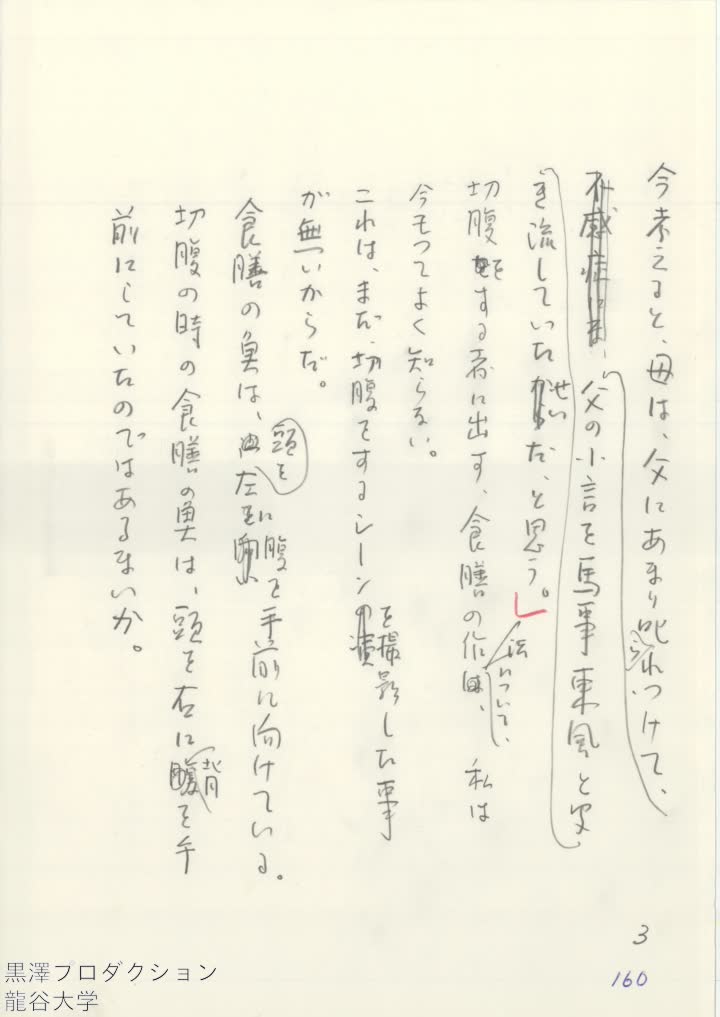 今考えると、母は、父にあまり叱られつけて、
不感症にま、父の小言を馬事東風と受
き流していたせいだ、と思う。
切腹をする者に出す、食膳の作法について、私は
今もってよく知らない。
これは、まだ、切腹をするシーンを撮影した事
が無いからだ。
食膳の魚は、頭を左に腹を手前に向けている。
切腹の時の食膳の魚は、頭を右に背を手
前にしていたのではあるまいか。
3
160
黒澤プロダクション
龍谷大学